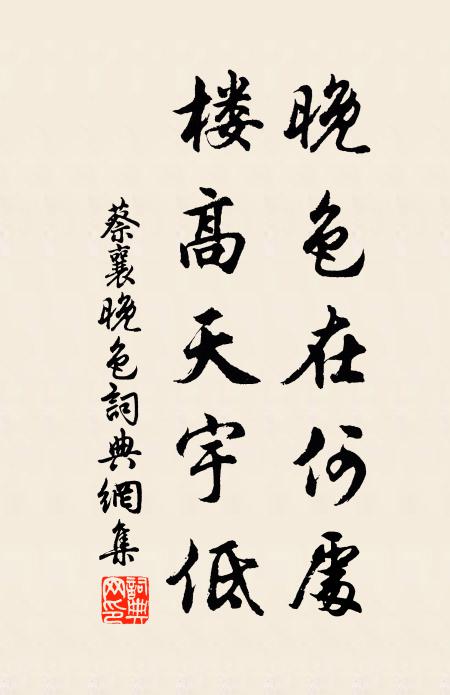 晚色在何處
楼高天宇低
蔡襄晚色詞典網集
詞典
网印